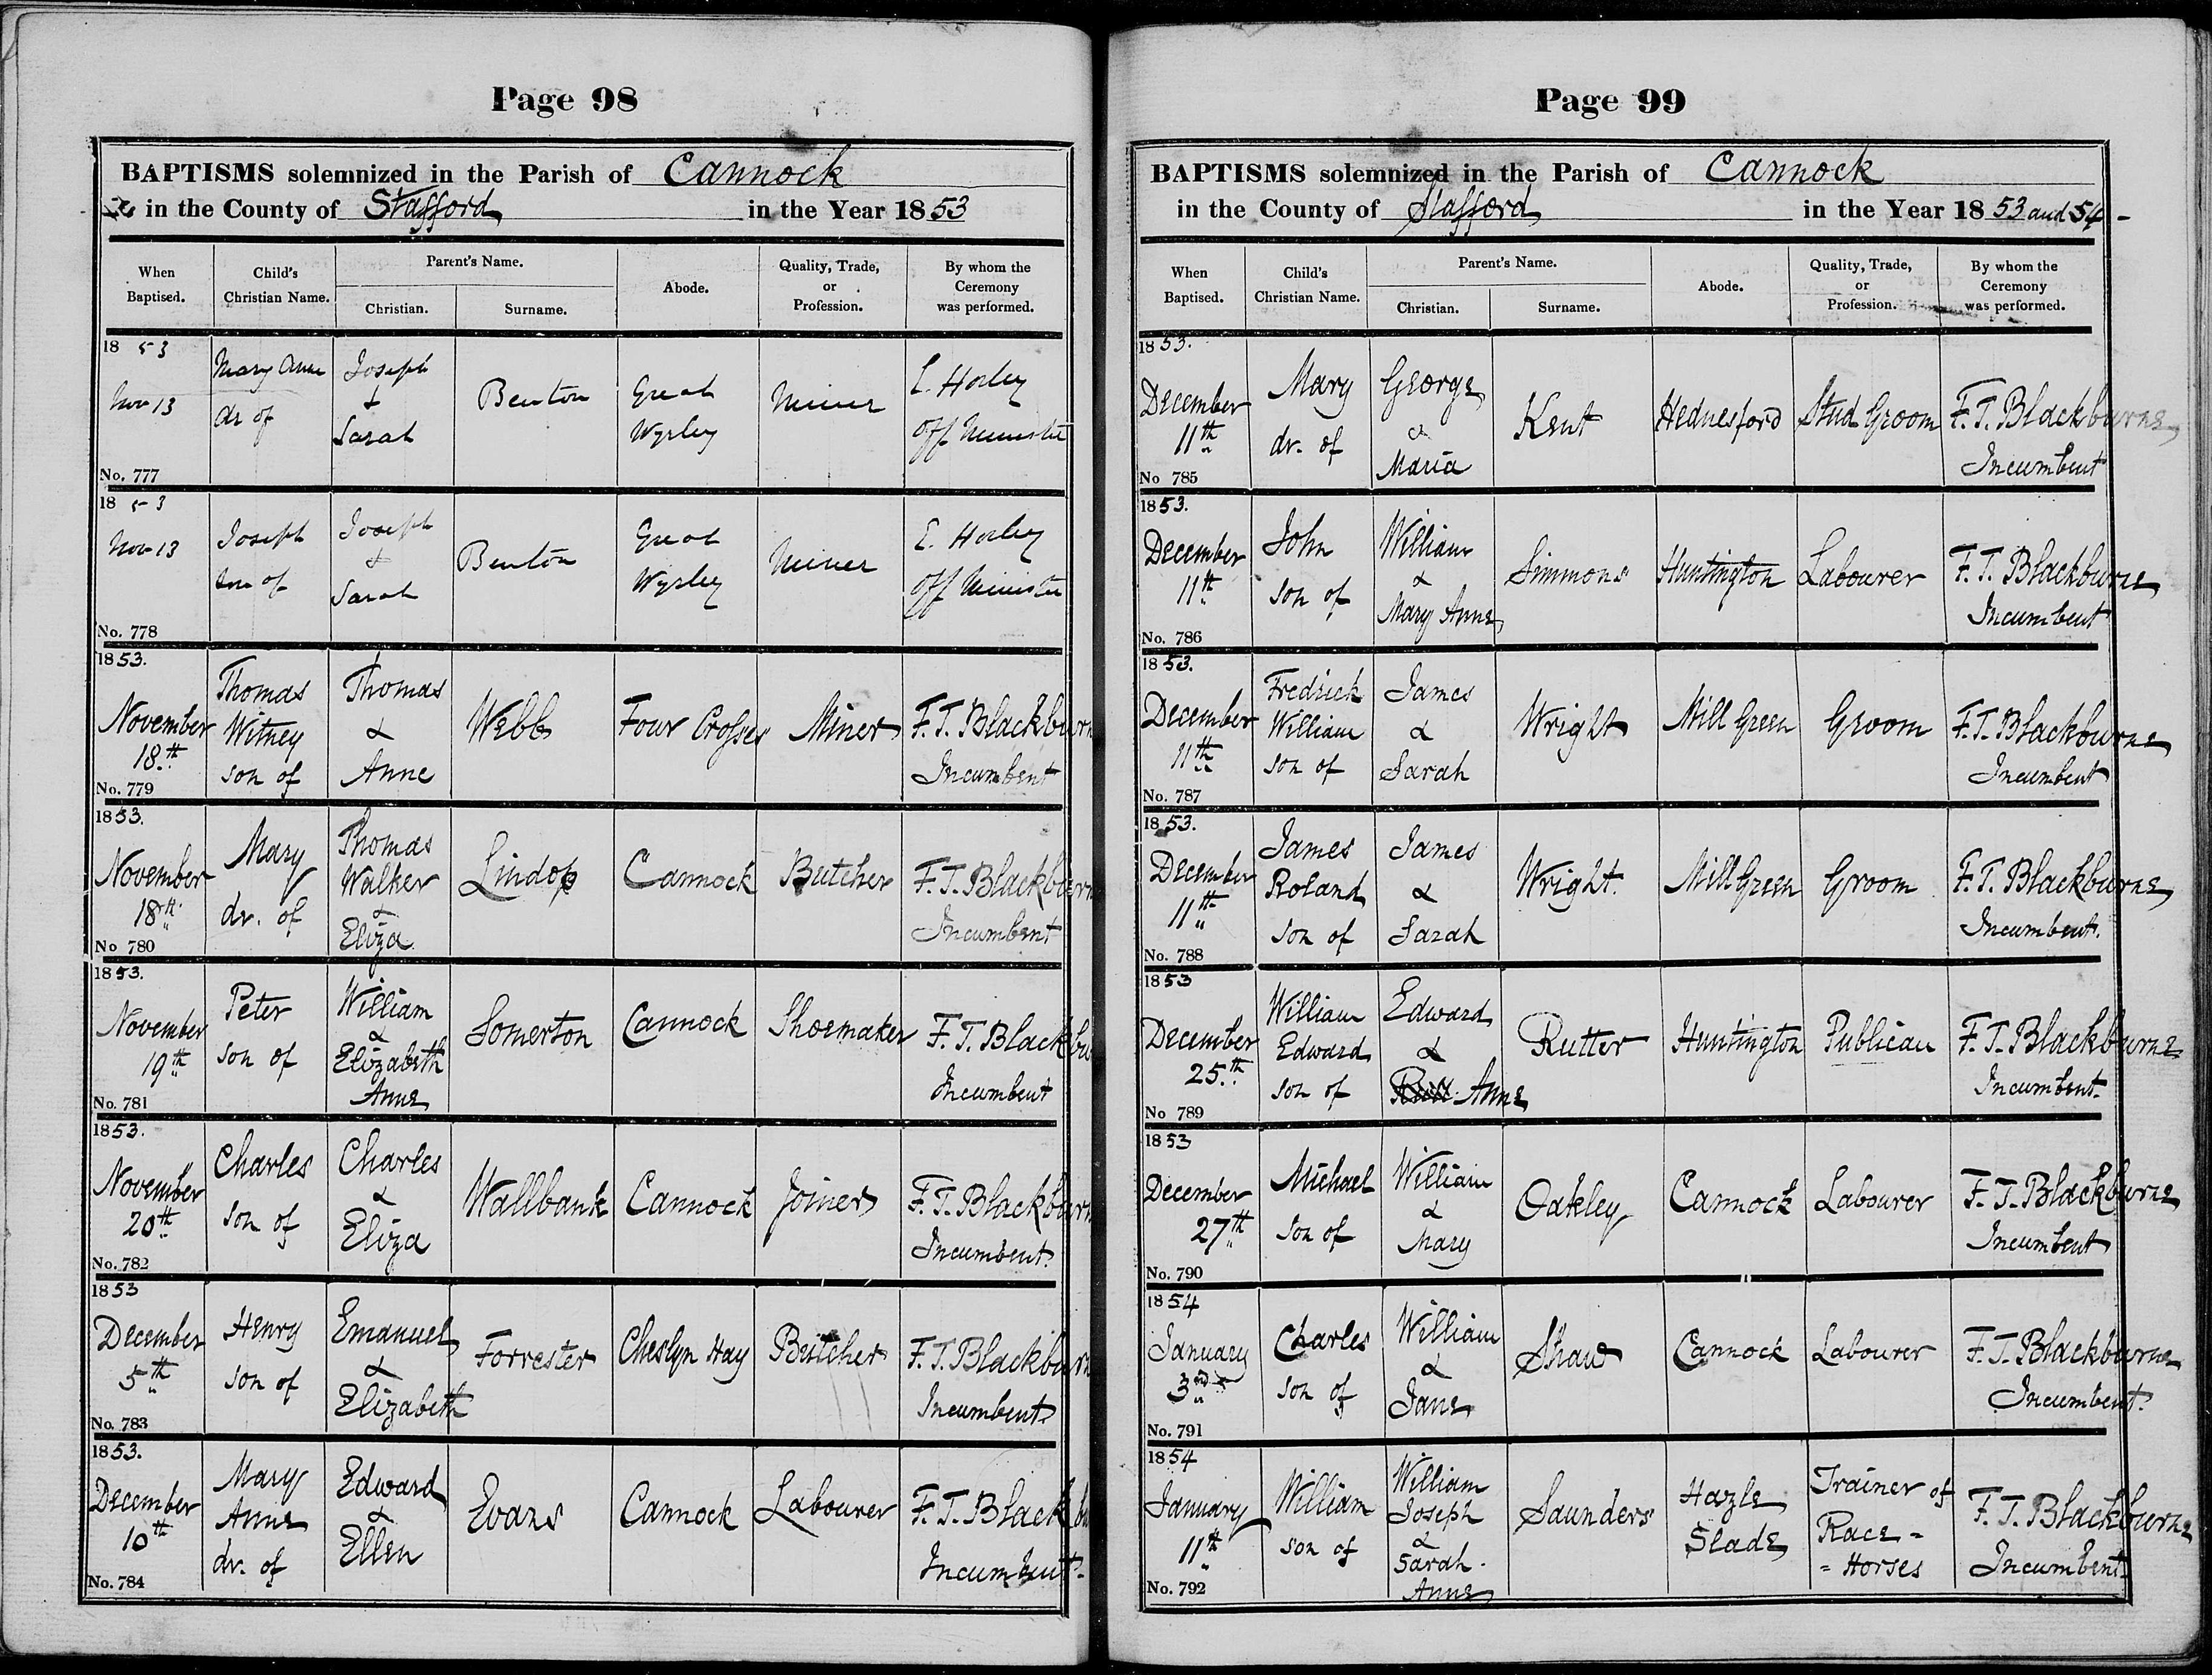 Page 98
BAPTISMS solemnized in the Parish of Cannock
in the County of Stafford in the Year 1853
When Baptised. Child's Christian Name. Parent's Name. Christian. Surname. Abode. Quality, Trade, or Profession. By whom the Ceremony was performed.
1853
Nov 13
No. 777
Mary Anne
dr of
Joseph
&
Sarah
Benton
Great
Wyrley
Miner
E. Horley
Off Minister
1853
Nov 13
No. 778
Joseph
son of
Joseph
&
Sarah
Benton
Great
Wyrley
Miner
E. Horley
Off Minister
1853.
November
18th
No. 779
Thomas
Witney
son of
Thomas
&
Anne
Webb
Four Crosses
Miner
F. T. Blackburn
Incumbent
1853.
November
18th
No 780
Mary
dr. of
Thomas
Walker
&
Eliza
Lindop
Cannock
Butcher
F. T. Blackburn
Incumbent
1853.
November
19th
No. 781
Peter
son of
William
&
Elizabeth
Anne
Somerton
Cannock
Shoemaker
F. T. Blackbu
Incumbent
1853.
November
20th
No. 782
Charles
son of
Charles
&
Eliza
Wallbank
Cannock
Joiner
F. T. Blackburn
Incumbent
1853
December
5th
No. 783
Henry
son of
Emanuel
&
Elizabeth
Forrester
Cheslyn Hay
Butcher
F. T. Blackburn
Incumbent
1853.
December
10th
No. 784
Mary
Anne
dr. of
Edward
&
Ellen
Evans
Cannock
Labourer
F. T. Blackbu
Incumbent
Page 99
BAPTISMS solemnized in the Parish of Cannock
in the County of Stafford in the Year 1853 and 54 -
When Baptised. Child's Christian Name. Parent's Name. Christian. Surname. Abode. Quality, Trade, or Profession. By whom the Ceremony was performed.
1853.
December
11th
No 785
Mary
dr. of
George
&
Maria
Kent
Hednesford
Stud Groom
F. T. Blackburne
Incumbent
1853.
December
11th
No. 786
John
son of
William
&
Mary Anne
Simmons
Huntington
Labourer
F. T. Blackburne
Incumbent
1853.
December
11th
No. 787
Fredrick
William
son of
James
&
Sarah
Wright
Mill Green
Groom
F. T. Blackburne
Incumbent
1853.
December
11th
No. 788
James
Roland
son of
James
&
Sarah
Wright.
Mill Green
Groom
F. T. Blackburne
Incumbent.
1853
December
25th
No 789
William
Edward
son of
Edward
&
Anne
Rutter
Huntington
Publican
F. T. Blackburne
Incumbent.
1853
December
27th
No. 790
Michael
son of
William
&
Mary
Oakley
Cannock
Labourer
F. T. Blackburne
Incumbent
1854
January
3rd
No. 791
Charles
son of
William
&
Jane
Shaw
Cannock
Labourer
F. T. Blackburne
Incumbent.
1854
January
11th
No. 792
William
son of
William
Joseph
&
Sarah
Anne
Saunders
Hazle
Slade
Trainer of
Race =
= Horses
F. T. Blackburne
Incumbent.